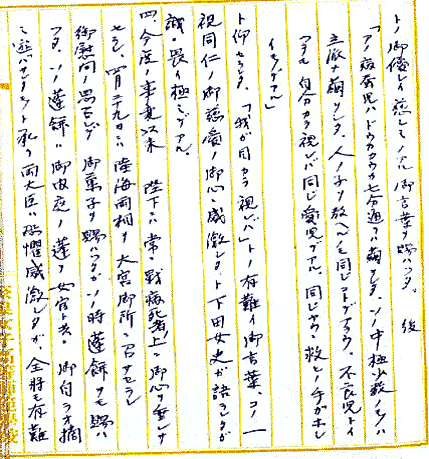 トノ御優シイ慈シミノアル御言葉ヲ賜ハツタ。 後
「アノ病蚕児ハドウカカウカ七分通リハ繭ヲシタ、ソノ中極少数ノモノハ
立派ナ繭ヲシタ、人ノ子ヲ教ヘルモ同ジコトデアラウ、不良児トイ
フテモ自分カラ視レバ同ジ愛児デアル、同ジヤウニ救ヒノ手ガホシ
イモノデアル」
ト仰セラレタ、「我ガ目カラ視レバ」トノ有難イ御言葉、コノ一
視同仁ノ御慈愛ノ御心ニ感激シタ、ト下田女史ガ語ラレタガ
誠ニ畏イ極ミデアル。
四、今度ノ事変以来 陛下ニハ常ニ戦病死者ノ上ニ御心ヲ垂レサ
セラレ 四月二十九日ニハ陸海両相ヲ大宮御所ニ召サセラレ
御慰問ノ思召シデ 御菓子ヲ賜ハツタガソノ時 蓮餅ヲモ賜ハ
ツタ、ソノ蓮餅ハ御内庭ノ蓮ヲ女官ト共ニ 御自ラオ摘
ミ遊バサレタト承リ両大臣ハ恐懼感激シタガ 全将モ有難